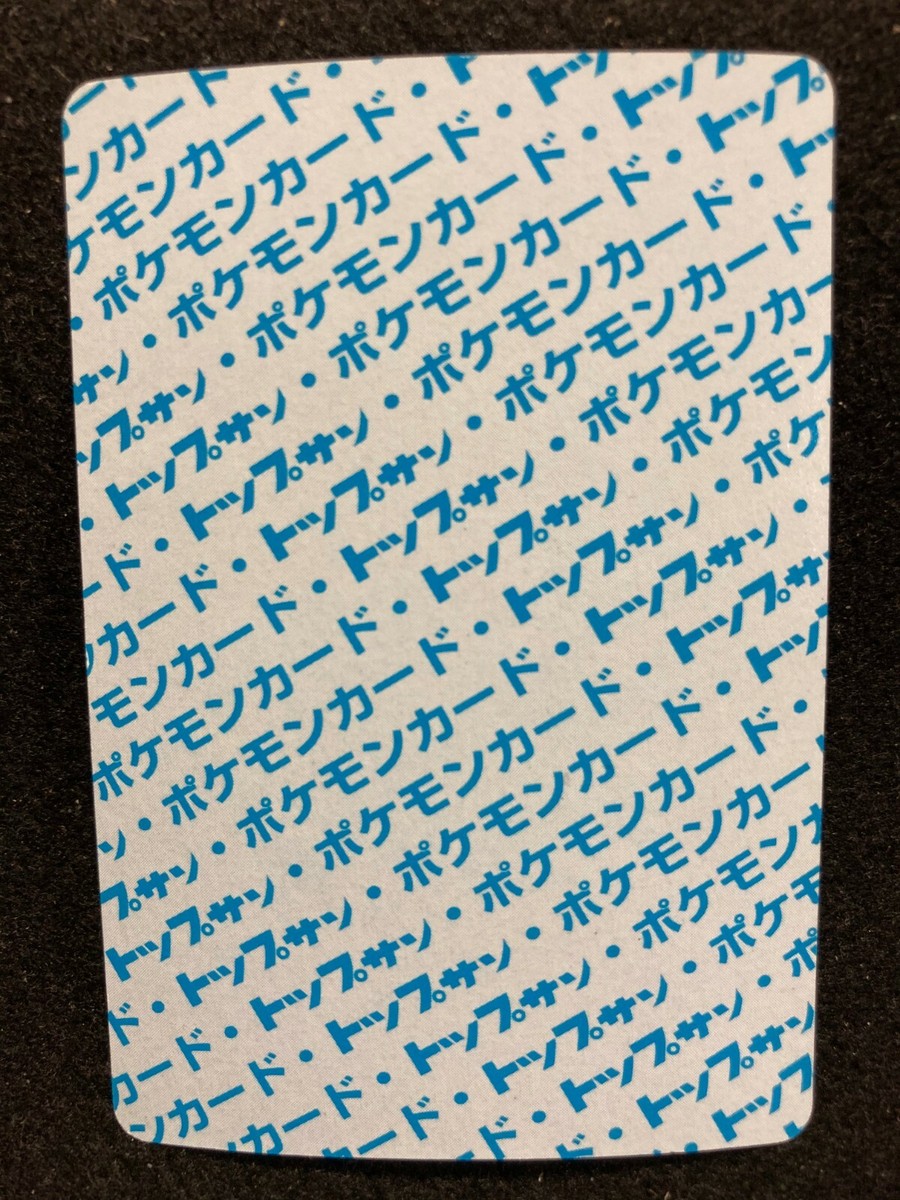 ード
ンカード・
ケモンカード・ト
・ポケモンカード・トッ
サン・ポケモンカード・トップ
ップサン・ポケモンカード・トップ
・トップサン・ポケモンカード・トッ
ード・トップサン・ポケモンカード・
ンカード・トップサン・ポケモンカー
モンカード・トップサン・ポケモン
ポケモンカード・トップサン・ポケ
ン・ポケモンカード・トップサン・
プサン・ポケモンカード・トップサ
トップサン・ポケモンカード・トップ
ド・トップサン・ポケモンカード・
カード・トップサン・ポケモンカー
ンカード・トップサン・ポケモンカ
カード・トップサン・ポケモ
ード・トップサン・ポ
ド・トップサン
・トップ